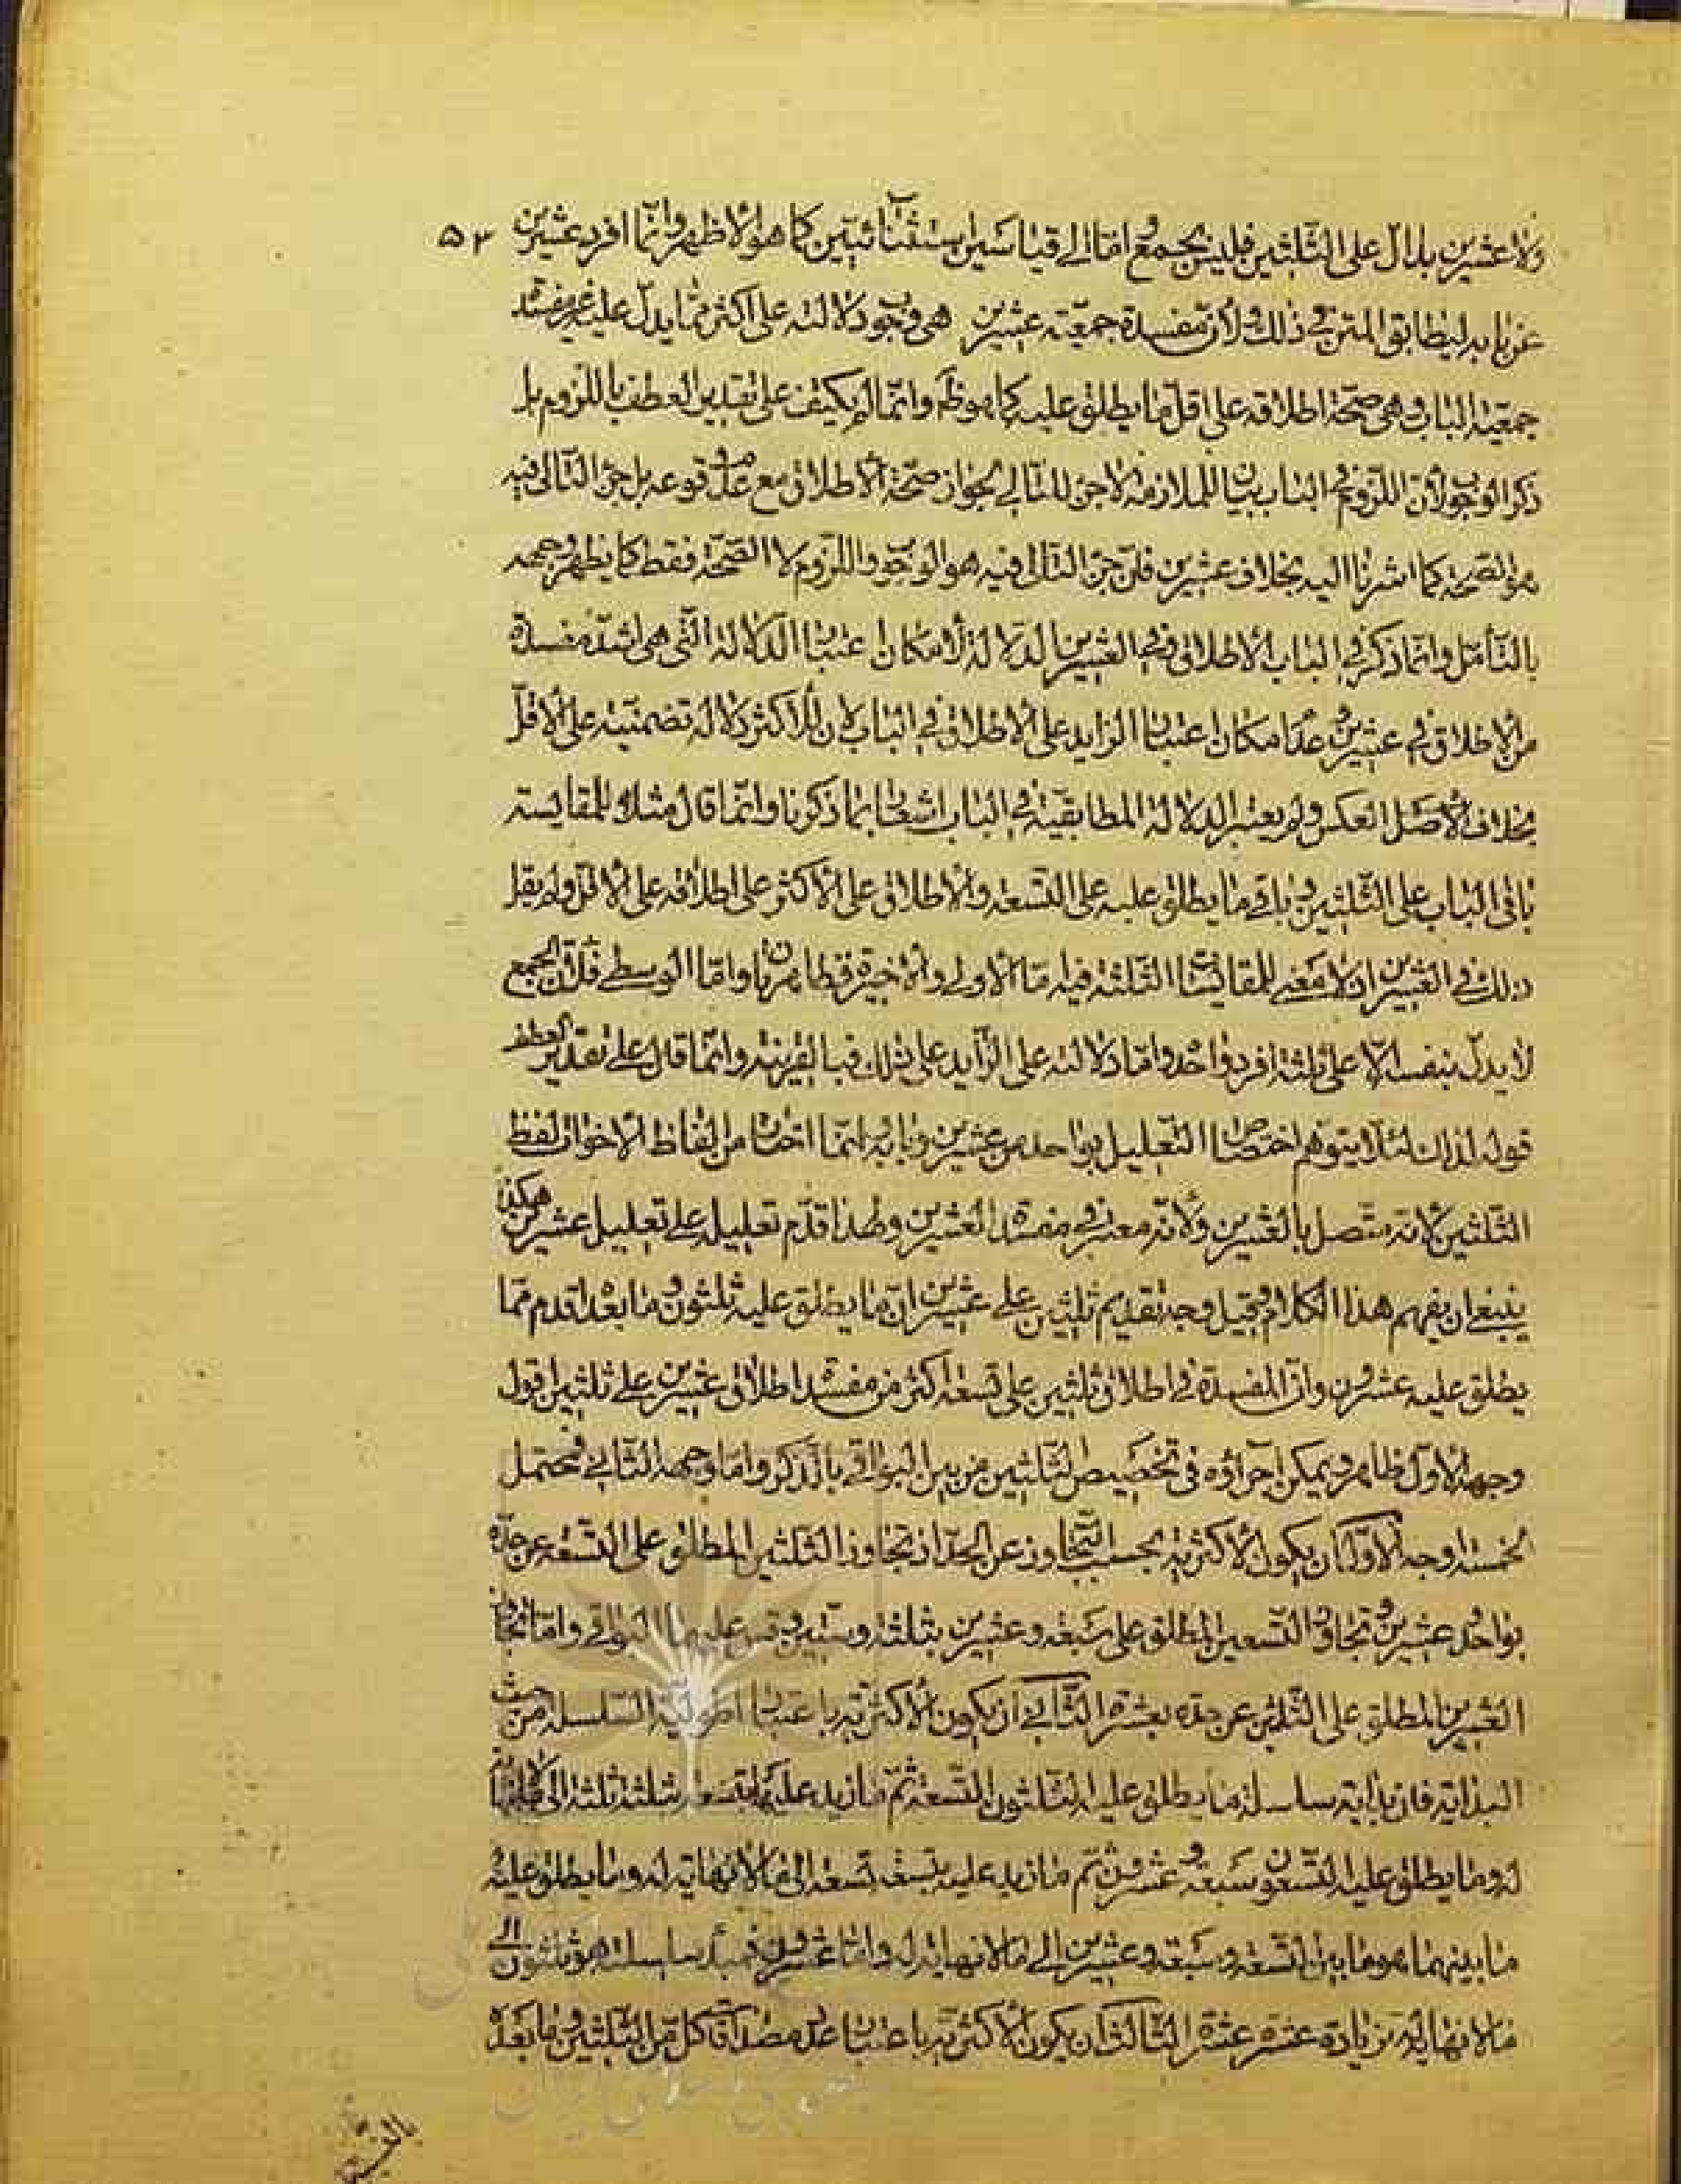 ولا عشرين بدال على الثلثين فليس بجمع واما الى قياسين استثنائيين كما هو الاظهر وانما افرد عشرين ٥٢
عن بابه ليطابق المتن في ذلك ولأن مفسدة جمعية عشرين هي وجوب دلالته على اكثر مما يدل عليه غير مفسدة
جمعية الباب وهي صحة اطلاقه على اقل ما يطلق عليه كما هو ظ وانما لم يكتف على تقدير العطف باللزوم بل
ذكر الوجوب لأن اللزوم في الباب بيان للملازمة لا جزء للتالي لجواز صحة الاطلاق مع عدم وقوعه بل جزء التالي فيه
هو الصحة كما اشرنا اليه بخلاف عشرين فان جزء التالي فيه هو الوجوب واللزوم لا الصحة فقط كما يظهر وجهه
بالتأمل وانما ذكر في الباب الاطلاق وفي العشرين الدلالة لأمكان اعتبار الدلالة التي هي اشد مفسدة
من الاطلاق في عشرين وعدم امكان اعتبار الزايد على الاطلاق في الباب لان للاكثر دلالة تضمنية على الاقل
بخلاف الأصل العكس ولم يعتبر الدلالة المطابقية في الباب اشعارا بما ذكرنا وانما قال مثلا لمقايسة
باقي الباب على الثلثين وباقي ما يطلق عليه على التسعة والاطلاق على الأكثر على اطلاقه على الاقل ولم يقل
ذلك في العشرين اذ لا معنى للمقايسات الثلثة فيه اما الأولى والأخيرة فظاهرتان واما الوسطى فلأن الجمع
لا يدل بنفسه الا على ثلثة افراد واحده واما دلالته على الزايد على ذلك فبالقرينة وانما قال على تقدير العطف
قوله لذلك لئلا يتوهم اختصاص التعليل بواحد من عشرين وبابه انما اختار من الفاظ الاخوات لفظ
الثلثين لانه متصل بالعشرين ولأنه معتبر في مفسدة العشرين ولهذا قدم تعليله على تعليل عشرين هكذا
ينبغي ان يفهم هذا الكلام وقيل وجه تقديم ثلثين على عشرين ان ما يطلق عليه ثلثون وما بعده اقدم مما
يطلق عليه عشرون وان المفسدة في اطلاق ثلثين على تسعة اكثر من مفسدة اطلاق عشرين على ثلثين اقول
وجهه الأول ظاهر ويمكن اجراؤه في تخصيص الثلثين من بين البواقي بالذكر واما وجهه الثاني فمحتمل
لخمسة اوجه الأول ان يكون الأكثرية بحسب التجاوز عن الحد اذ تجاوز الثلثين المطلق على التسعة عن حده
بواحد وعشرين وتجاوز التسعين المطلق على سبعة وعشرين بثلثة وستين وقس عليهما البواقي واما تجاوز
العشرين المطلق على الثلثين عن حده بعشرة الثاني ان يكون الأكثرية باعتبار اطولية السلسلة من حيث
البداية فان بداية سلسلة ما يطلق عليه الثلثون التسعة ثم ما زيد عليها بثلثة ثلثة الى ما لا نهاية
له وما يطلق عليه التسعون سبعة وعشرون ثم ما زيد عليه بتسعة تسعة الى ما لا نهاية له وما يطلق عليه
ما بينهما هو ما بين التسعة وسبعة وعشرين الى ما لا نهاية له واما عشرون فمبدأ سلسلته هو ثلثون الى
ما لا نهاية له بزيادة عشرة عشرة الثالث ان يكون الأكثرية باعتبار عدم مصداق كل من الثلثين وما بعده